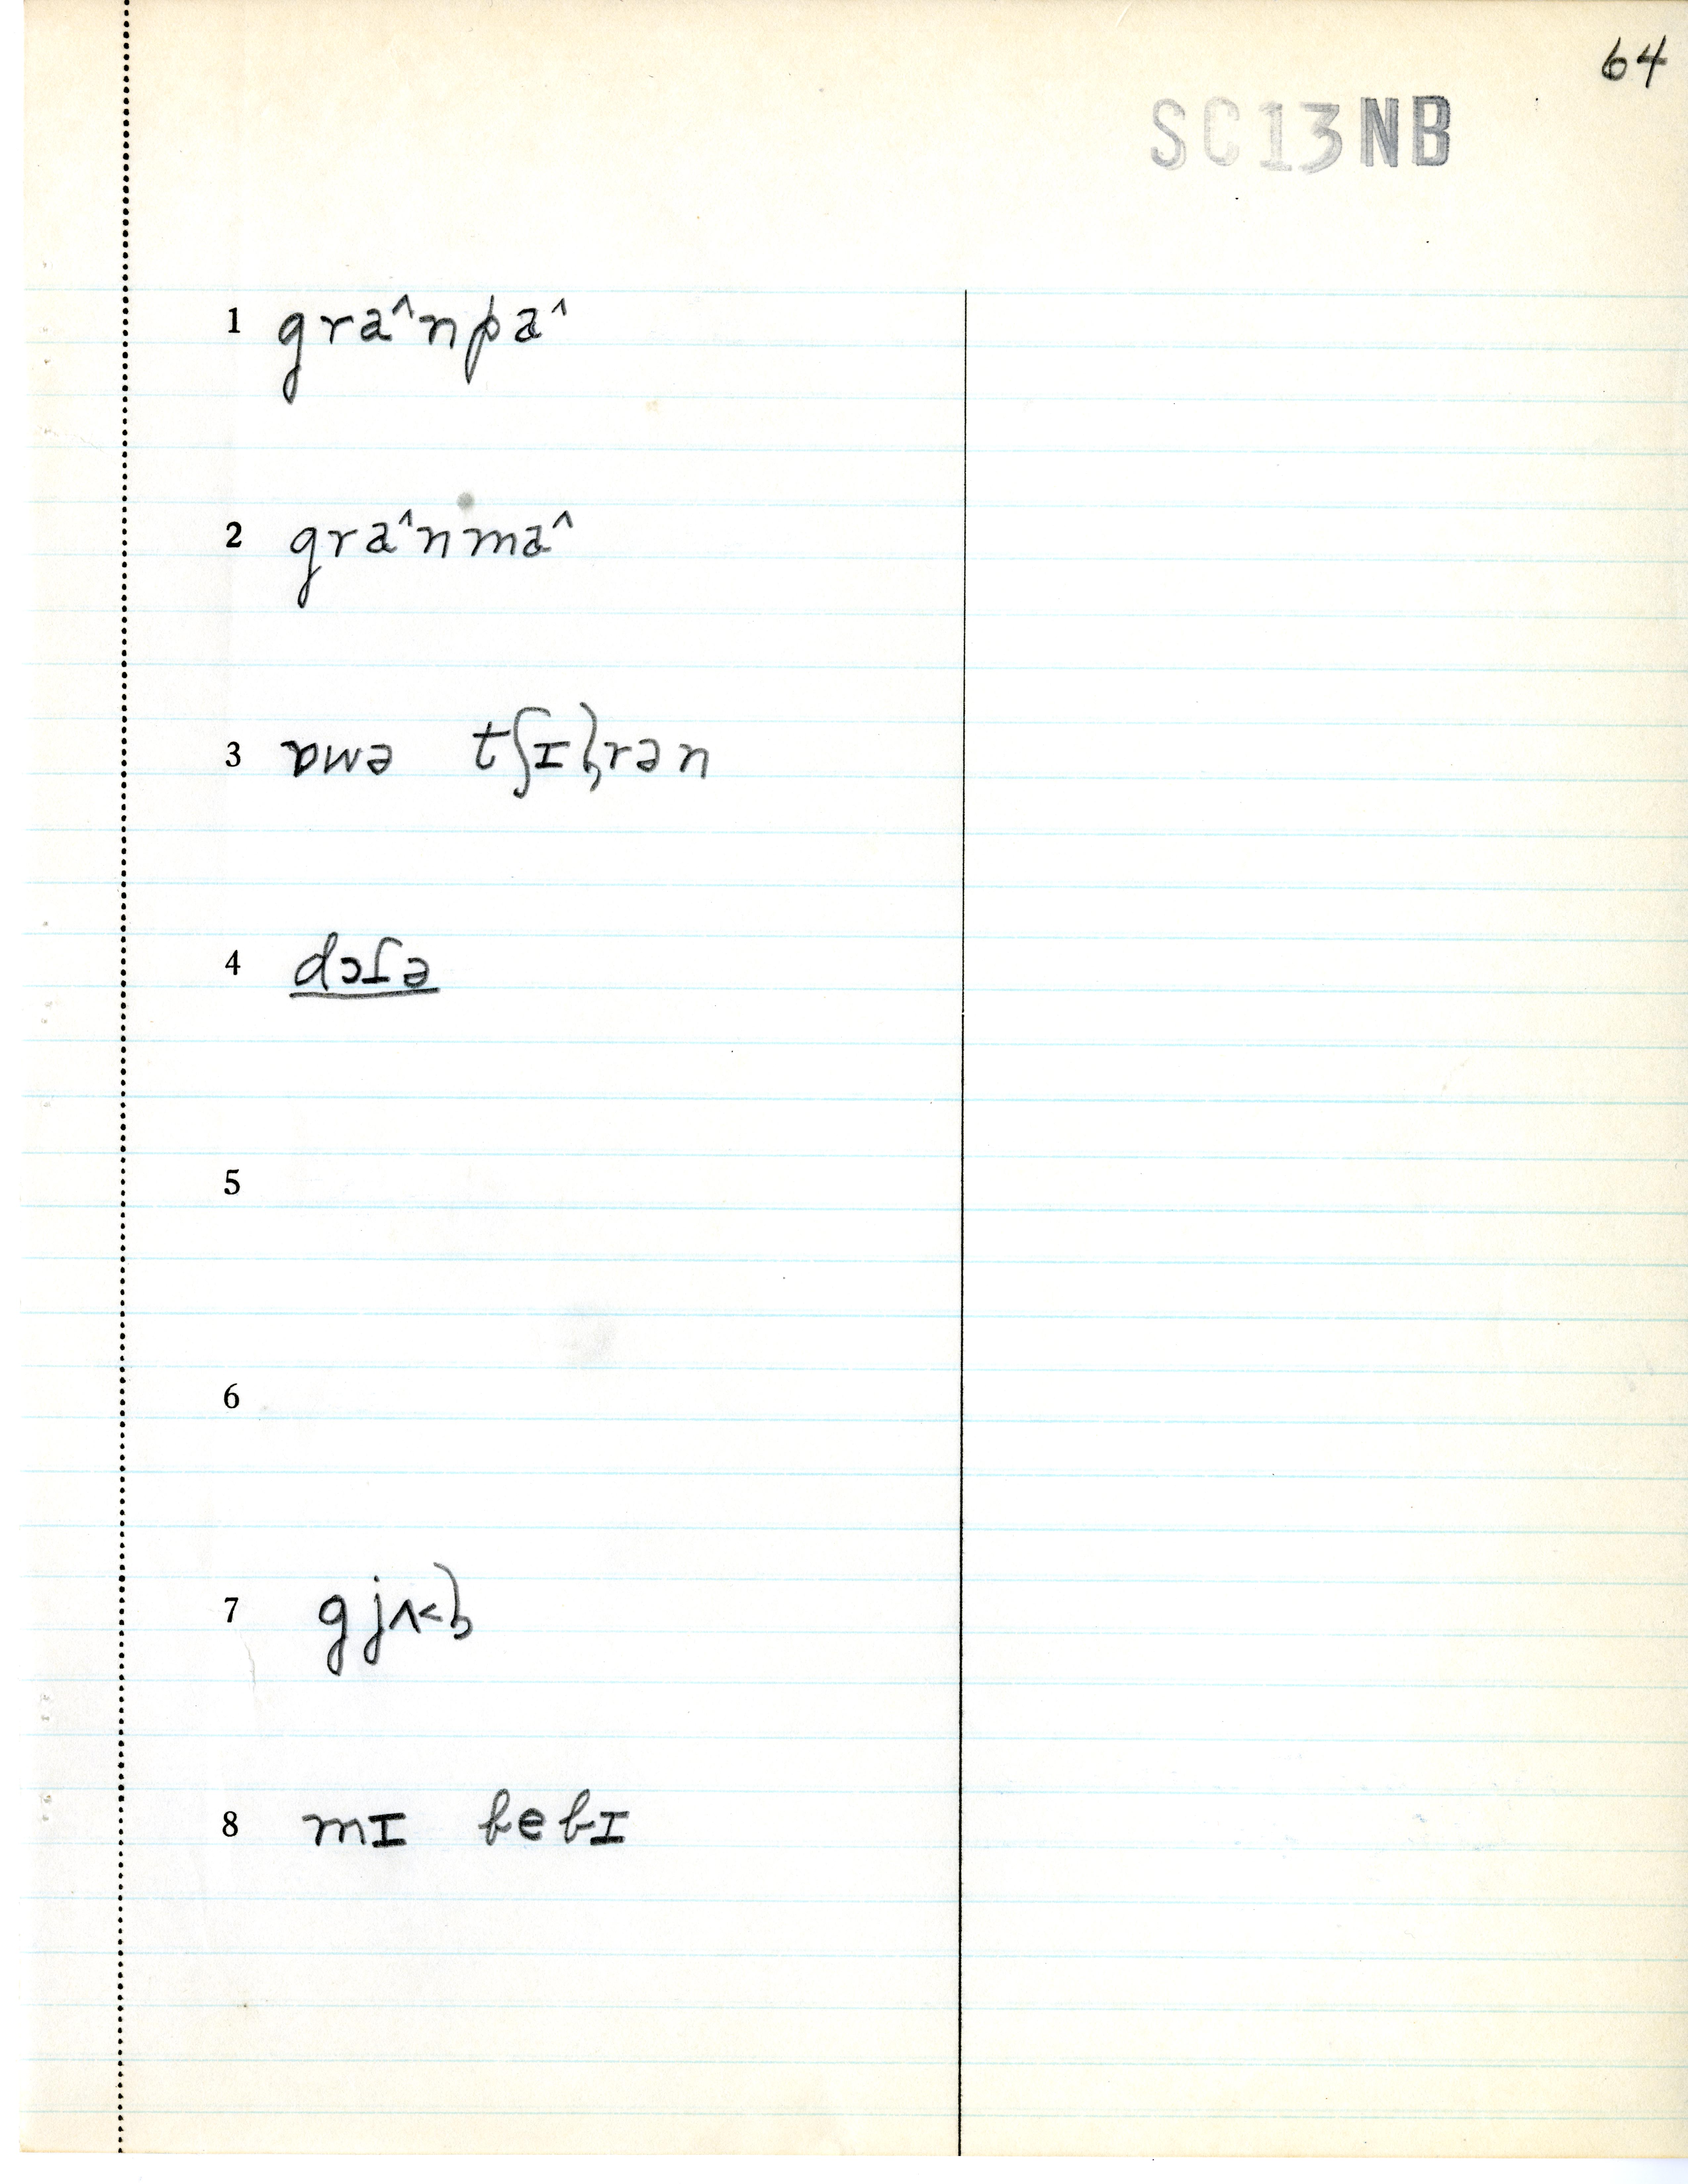 64
SC13NB
1 gra^npa^
2 gra^nma^
3 ɒwə tʃɪɮrən
4 dɔʃə
5
6
7 gjʌ<ɮ
8 mɪ bebɪ